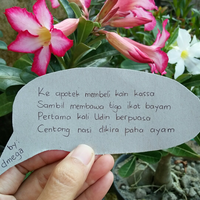 Ke apotek membeli kain kassa
Sambil membawa tiga ikat bayam
Pertama kali Udin berpuasa
Centong nasi dikira paha ayam
by:
dmega